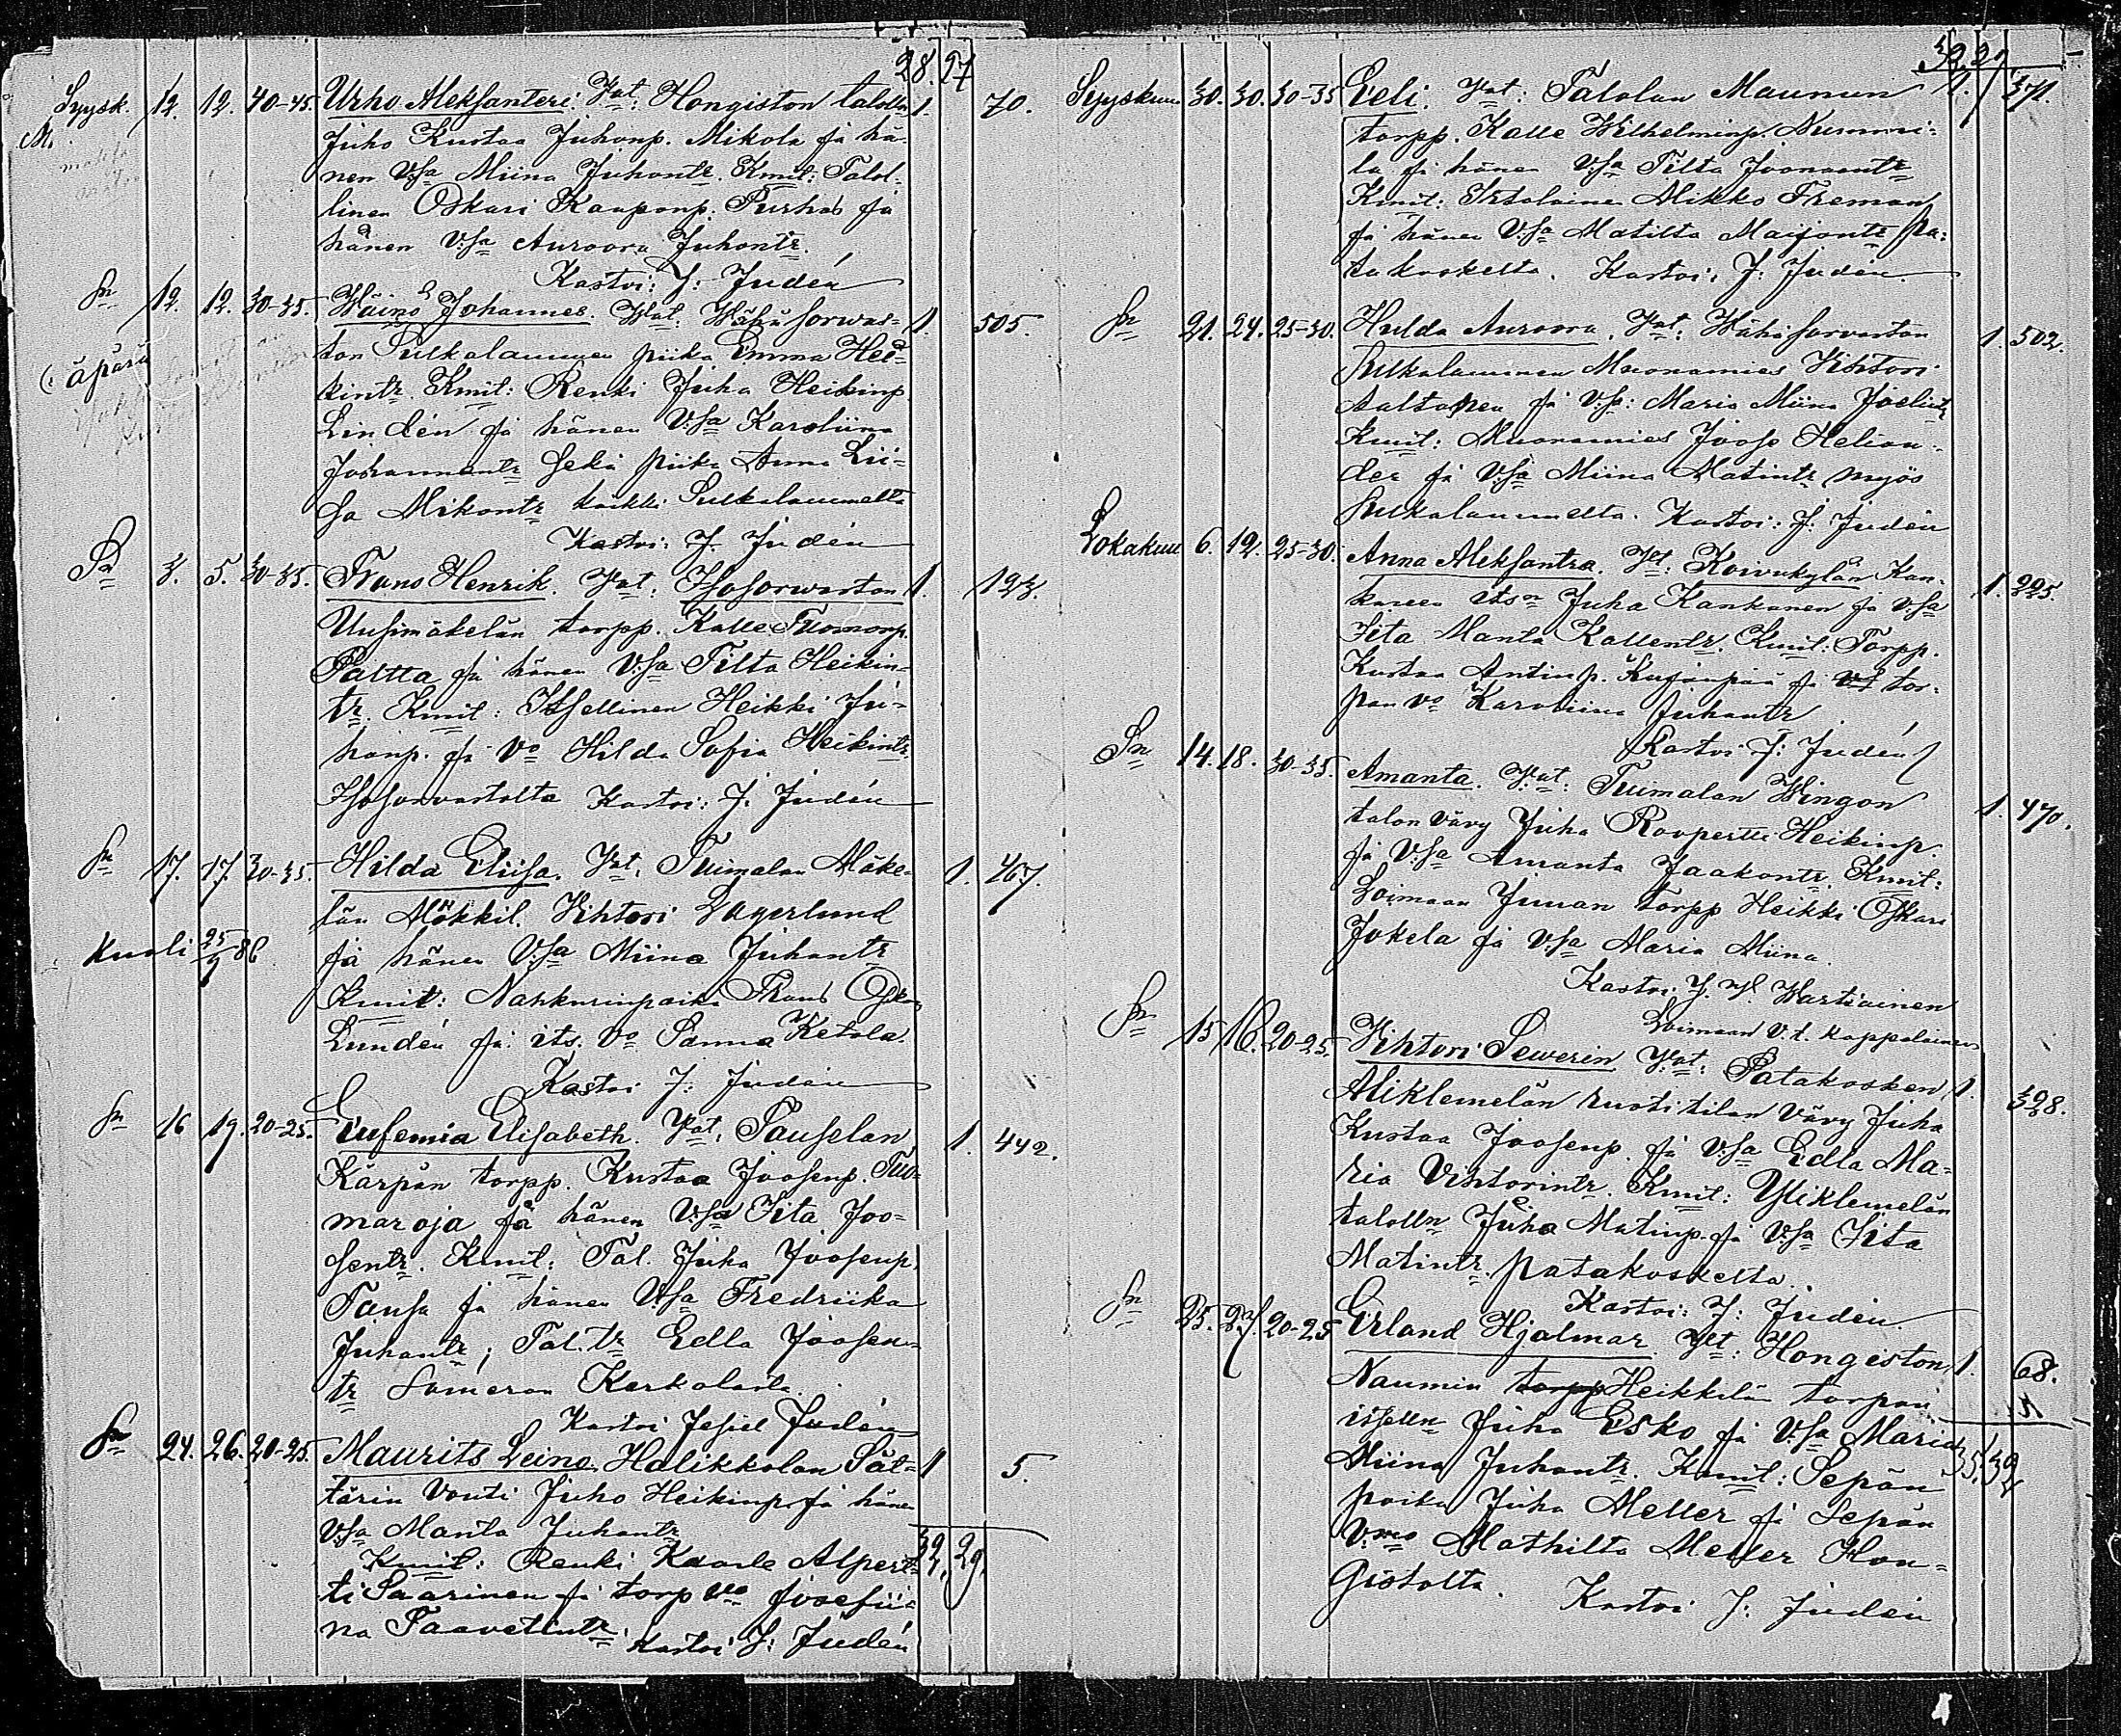 28. 27
Syysk. 12. 12. 40-45. Urho Aleksanteri. Vat: Hongiston talolln 1. 70.
M. Juho Kustaa Juhonp. Mikola ja hä-
nen V:sa Miina Juhontr. Kmit: Talol-
linen Oskari Kauponp. Turhas ja
hänen V:sa Auroora Juhontr.
Kastoi: J: Judén
Sn 12. 12. 30-35. Wäinö Johannes. Vat: Wähäsorwas- 1. 505.
(: äpärä ton Sulkalammen piika Emma Hei-
kintr. Kmit: Renki Juha Heikinp
Lindén ja hänen V:sa Karoliina
Johannantr sekä piika Anna Lii-
sa Mikontr kaikki Sulkalammelta
Kastoi: J. Judén
Sn 3. 5. 30-35. Frans Henrik. Vat: Isosorwaston 1. 193.
Uusimäkelän torpp. Kalle Tuomonp.
Paltta ja hänen V:sa Tilta Heikin-
tr. Kmit: Itsellinen Heikki Ju-
honp. ja Vo Hilda Sofia Heikintr
Isosorvastolta Kastoi: J: Judén
Sn 17. 17. 30-35. Hilda Eliisa. Vat: Tuimalan Mäke- 1. 467.
län Mökkil. Vihtori Lagerlund
kuoli 25/9 86 ja hänen V:sa Miina Juhontr
Kmit: Nahkurinpoika Frans Oskar
Lundén ja its. Vo Sanna Ketola.
Kastoi J: Judén
Sn 16 19. 20-25. Eufemia Elisabeth. Vat: Pauselan 1. 442.
Kärpän torpp. Kustaa Joosenp. Tuo-
maroja ja hänen V:sa Iita Joo-
sentr. Kmit: Tal. Juha Joosenp.
Tausa ja hänen V:sa Fredriika
Juhontr; Tal. tr Edla Joosen-
tr Someron Kerkolasta.
Kastoi Jesiel Judén
Sn 24. 26. 20-25. Maurits Leino. Halikkolan Sät- 1 5.
tärin Vouti Juho Heikinp. ja hänen
V:sa Manta Juhontr
Kmit: Renki Kaarle Alpert- 32, 29,
ti Saarinen ja torp Vo Josefii-
na Taavetintr. Kastoi J: Judén
32, 29,
Syyskuu 30. 30. 30-35 Eeli. Vat: Talolan Maunun 1. 371.
torpp. Kalle Wilhelminp. Nummi-
la ja hänen V:sa Tilta Joonaantr
Kmit: Irtolainen Mikko Freman
ja hänen V:sa Matilta Maijontr Pa-
takoskelta. Kastoi: J: Judén
Sn 21. 24. 25-30. Hulda Auroora. Vat: Wähäsorvaston 1. 502.
Sulkalammen Muonamies Vihtori
Aaltonen ja V:sa: Maria Miina Joelintr
Kmit: Muonamies Jooso Helian-
der ja V:sa Miina Matintr myös
Sulkalammelta. Kastoi: J: Judén
Lokakuu 6. 12. 25-30. Anna Aleksantra. Vat: Koivukylän Kan- 1. 225.
kareen Itsn Juha Kankanen ja V:sa
Iita Manta Kallentr. Kmit: Torpp.
Kustaa Antinp. Kujanpää ja tor-
pan Vo Karoliina Juhontr
Kastoi J: Judén
Sn 14. 18. 30-35. Amanta. Vat: Tuimalan Wingon 1. 470.
talon vävy Juha Roopertti Heikinp.
ja V:sa Amanta Jaakontr. Kmit:
Loimaan Juuan torpp Heikki Oskari
Jokela ja V:sa Maria Miina.
Kastoi J. W. Wartiainen
Loimaan v. t. kappalainen
Sn 15 16. 20-25. Vihtori Sewerin Vat: Patakosken 1. 328.
Aliklemelän rusti tilan vävy Juha
Kustaa Joosenp. ja V:sa Edla Ma-
ria Vihtorintr. Kmit: Yliklemelän
talolln Juha Matinp. ja V:sa Iita
Matintr. Patakoskelta.
Kastoi: J: Judén.
Sn 25. 27. 20-25 Erland Hjalmar. Vat: Hongiston 1. 68.
Naumin torpp Heikkilän torpan
itselln Juha Esko ja V:sa Maria 35, 32
Miina Juhontr. Kmit: Sepän
poika Juha Meller ja Sepän
Vmo Mathilta Meller Hon-
gistolta.
Kastoi J: Judén